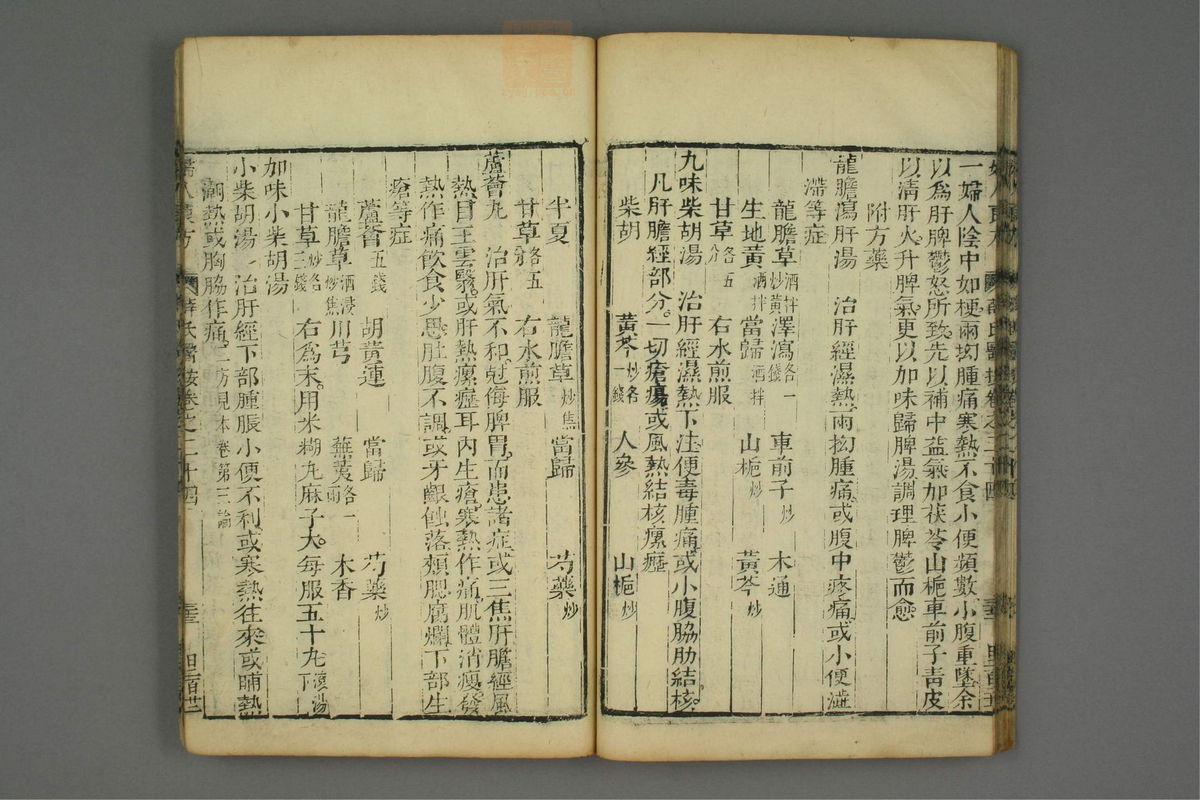 一婦人陰中如梗兩拗腫痛寒熱不食小便頻數小腹重墜余
以爲肝脾鬱怒所致先以補中益氣加茯苓山梔車前子青皮
以清肝火升脾氣更以加味歸脾湯調理脾鬱而愈
附方藥
龍膽瀉肝湯 治肝經濕熱兩拗腫痛或腹中疼痛或小便澁
滯等症
龍膽草酒拌炒黃 澤瀉各一錢 車前子炒 木通
生地黃酒拌 當歸酒拌 山梔炒 黃芩炒
甘草各五分 右水煎服
九味柴胡湯 治肝經濕熱下注便毒腫痛或小腹脇肋結核
凡肝膽經部分一切瘡瘍或風熱結核瘰癧
柴胡 黃芩炒各一錢 人參 山梔炒
半夏 龍膽草炒焦 當歸 芍藥炒
甘草各五分 右水煎服
蘆薈丸 治肝氣不和尅侮脾胃而患諸症或三焦肝膽經風
熱目生雲翳或肝熱瘰癧耳內生瘡寒熱作痛肌體消瘦發
熱作痛飲食少思肚腹不調或牙齦蝕落頰腮腐爛下部生
瘡等症
蘆薈五錢 胡黃連 當歸 芍藥炒
龍膽草酒浸炒焦 川芎 蕪荑各一兩 木香
甘草炒各三錢 右爲末用米糊丸麻子大每服五十丸滾湯下
加味小柴胡湯
小柴胡湯 治肝經下部腫脹小便不利或寒熱往來或晡熱
潮熱或胸脇作痛二方見本卷第三論